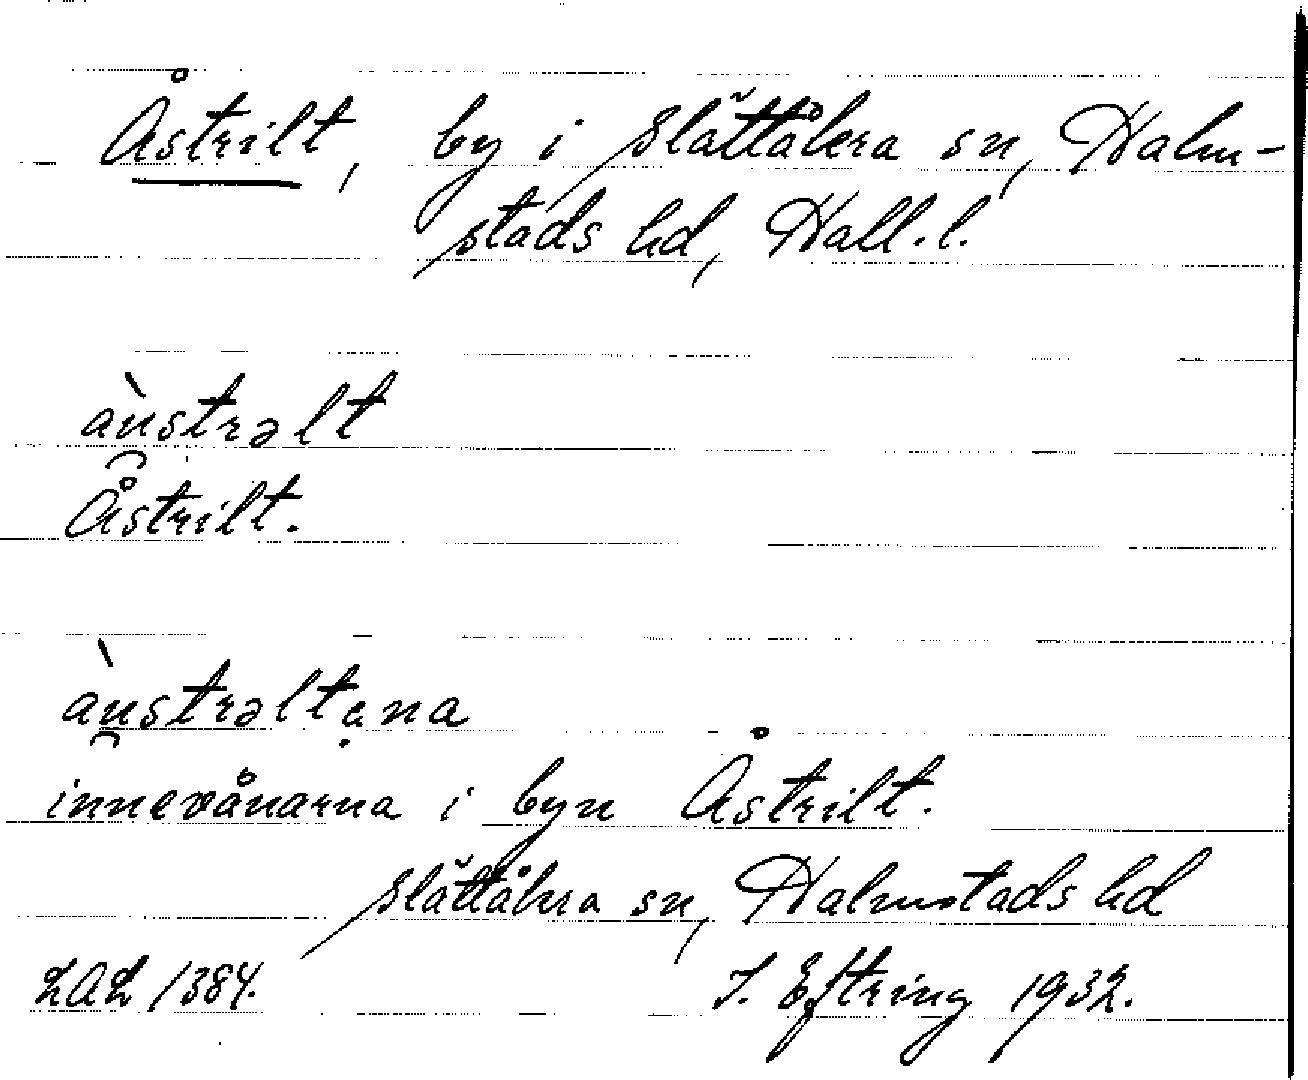 Åstrilt, by i Slättåkra sn, Halm-
stads hd, Hall. l.
àu̯strəlt
Åstrilt.
àu̯strəltạna
innevånarna i byn Åstrilt.
Slättåkra sn, Halmstads hd
LAL 1384. I. Eftring 1932.